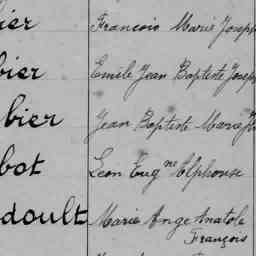 ier Francois Marie Joseph
bier Emile Jean Baptiste Josep
bier Jean Baptiste Marie
bot Léon Eugne Alphonse
doult Marie Ange Anatole
François